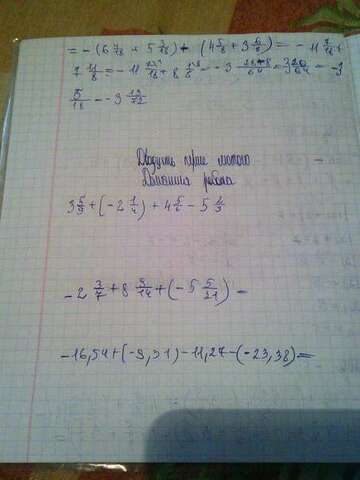 = -(6 7/18 + 5 7/18) + (4 5/8 + 3 6/8) = -11
7 11/8 = -11 + 8 = -3 = 3 20/64 = -3
5/18 = -3 19/72
Двадцять перше лютого
Домашня робота
3 5/9 + (-2 1/4) + 4 5/6 - 5 2/3
-2 3/7 + 8 5/14 + (-5 5/21) =
-16,54 + (-9,31) - 11,27 - (-23,38) =